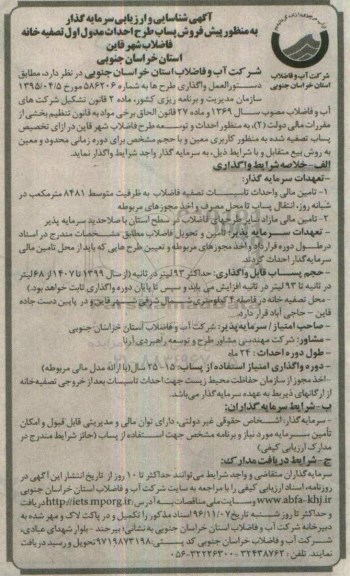 آگهی شناسایی و ارزیابی سرمایه گذار
به منظور پیش فروش پساب طرح احداث مدول اول تصفیه خانه
فاضلاب شهر قاین
استان خراسان جنوبی
شرکت آب و فاضلاب
استان خراسان جنوبی
شرکت آب و فاضلاب استان خراسان جنوبی در نظر دارد، مطابق
دستورالعمل واگذاری طرح ها به شماره ۵۸۶۲۰۶ مورخ ۱۳۹۵/۰۴/۵
سازمان مدیریت و برنامه ریزی کشور، ماده ۲ قانون تشکیل شرکت های
آب و فاضلاب مصوب سال ۱۳۶۹ و ماده ۲۷ قانون الحاق برخی مواد به قانون تنظیم بخشی از
مقررات مالی دولت (۲)، به منظور احداث و توسعه طرح فاضلاب شهر قاین در ازای تخصیص
پساب تصفیه شده به منظور کاربری معین و با حجم مشخص برای دوره زمانی محدود و معین
به روش بیع متقابل و با شرایط ذیل، به سرمایه گذار واجد شرایط واگذار نماید.
الف- خلاصه شرایط واگذاری
- تعهدات سرمایه گذار:
۱- تامین مالی واحداث تاسیسات تصفیه فاضلاب به ظرفیت متوسط ۸۴۸۱ مترمکعب در
شبانه روز، انتقال پساب تا محل مصرف و اخذ مجوزهای مربوطه
۲- تامین مالی مازاد سایر طرحهای فاضلاب در سطح استان با صلاحدید سرمایه پذیر
- تعهدات سرمایه پذیر: تامین و تحویل فاضلاب مطابق مشخصات مندرج در اسناد
درطول دوره قرارداد و اخذ مجوزهای مربوطه و تعیین طرح هایی که باید از محل تامین مالی
سرمایه گذار احداث گردند.
- حجم پساب قابل واگذاری: حداکثر ۹۳ لیتر در ثانیه (از سال ۱۳۹۹ تا ۱۴۰۷ از ۶۸ لیتر
در ثانیه تا ۹۳ لیتر در ثانیه افزایش می یابد و سپس تا پایان دوره واگذاری ثابت خواهد بود.)
- محل تصفیه خانه در فاصله ۴ کیلومتری شمال شرقی شهر قاین و در پایین دست جاده
قاین - حاجی آباد قرار دارد.
- صاحب امتیاز / سرمایه پذیر: شرکت آب و فاضلاب استان خراسان جنوبی
- مشاور: شرکت مهندسین مشاور طرح و توسعه راهبردی آرنا
- طول دوره احداث: ۲۴ ماه
- دوره واگذاری امتیاز استفاده از پساب: ۱۵-۲۵ سال (با ارائه مدل مالی مربوطه)
- اخذ مجوز از سازمان حفاظت محیط زیست جهت احداث تاسیسات بعد از خروجی تصفیه خانه
از ارگانهای ذیربط به عهده سرمایه گذار می باشد.
ب- شرایط سرمایه گذاران:
- سرمایه گذار: اشخاص حقوقی غیر دولتی، دارای توان مالی و مدیریتی قابل قبول و امکان
تأمین سرمایه مورد نیاز و برنامه مشخص جهت استفاده از پساب (حائز شرایط مندرج در
مدارک ارزیابی کیفی)
ج- شرایط دریافت مدارک:
سرمایه گذاران متقاضی و واجد شرایط می توانند حداکثر تا ۱۰ روز از تاریخ انتشار این آگهی در
روزنامه، اسناد ارزیابی کیفی را با مراجعه به سایت شرکت آب و فاضلاب استان خراسان جنوبی
www.abfa-khj.ir وسایت ملی مناقصات به آدرس http://iets.mporg.ir دریافت
و حداکثر تا روز شنبه به تاریخ ۹۶/۱۱/۰۷ اسناد مذکور را تکمیل و در پاکت لاک و مهر شده به
دبیرخانه شرکت آب و فاضلاب استان خراسان جنوبی به نشانی: بیرجند - بلوار شهدای عبادی،
شرکت آب و فاضلاب استان خراسان جنوبی کد پستی: ۹۷۱۹۸۷۳۱۹۸ تحویل و رسید دریافت
نمایند. تلفن: ۳۲۴۳۸۷۶۲ - ۳۲۲۲۶۳۰۰-۰۵۶